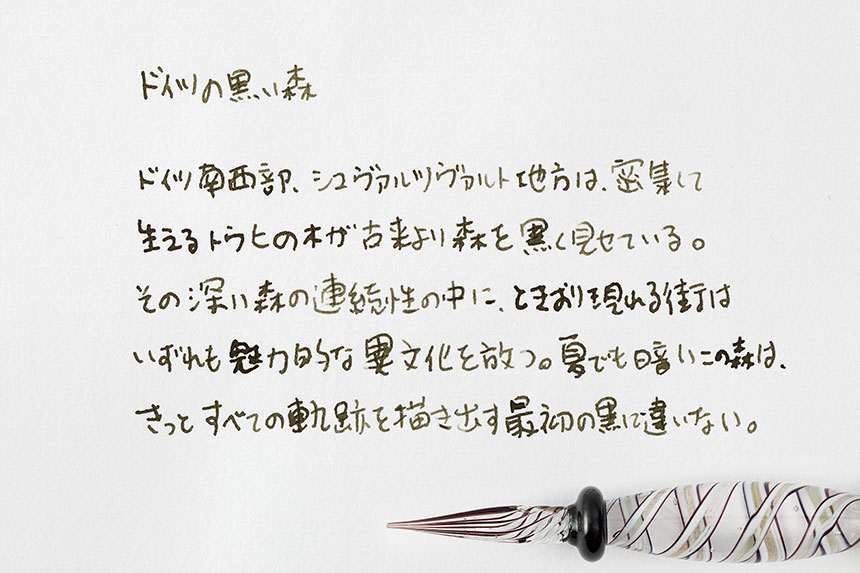 ドイツの黒い森
ドイツ南西部、シュヴァルツヴァルト地方は、密集して
生えるトウヒの木が古来より森を黒く見せている。
その深い森の連続性の中に、ときおり現れる街は
いずれも魅力的な異文化を放つ。夏でも暗いこの森は、
きっとすべての軌跡を描き出す最初の黒に違いない。